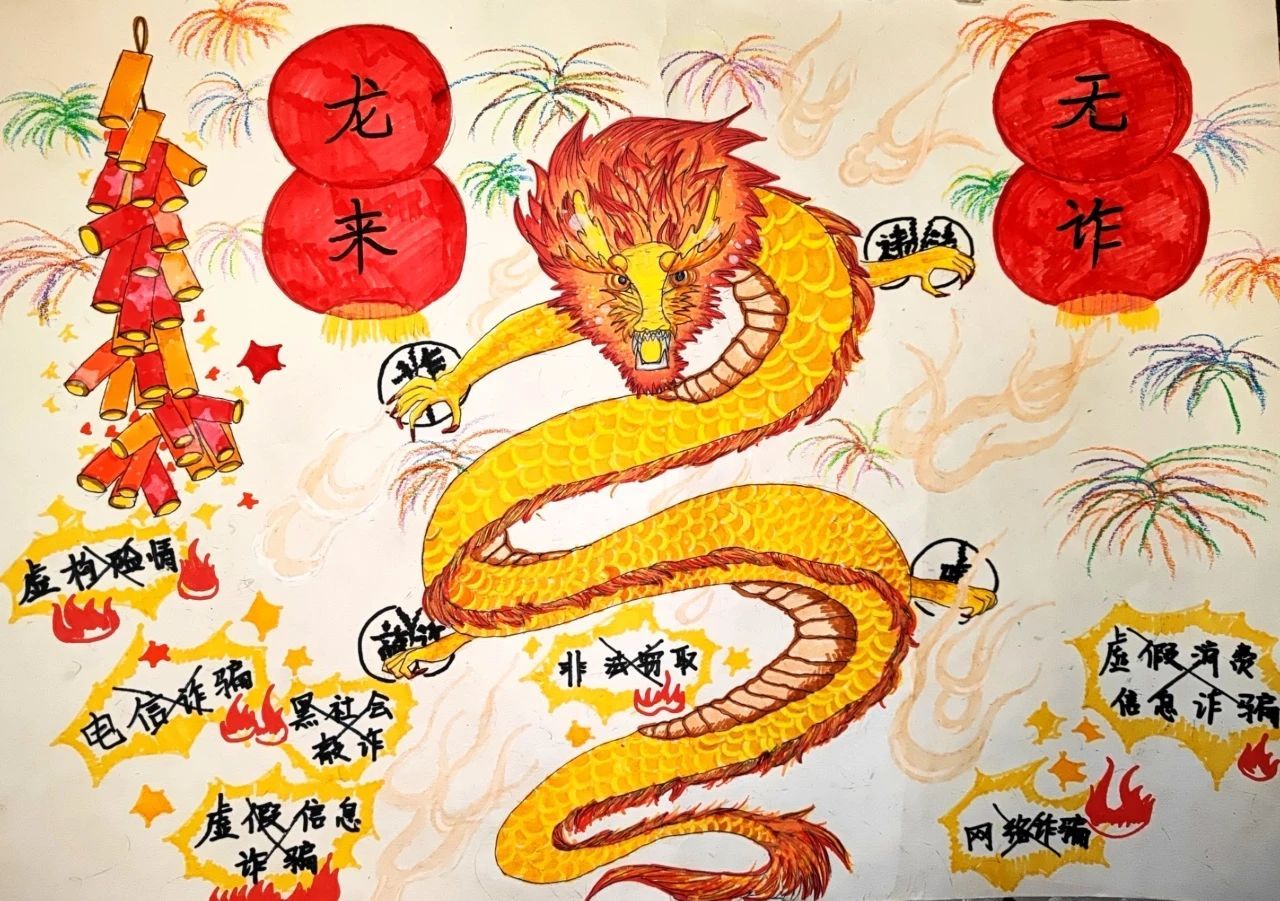 龙
来
无
诈
虚构险情
电信诈骗
黑社会
敲诈
虚假信息
诈骗
非法窃取
虚假消费
信息诈骗
网络诈骗